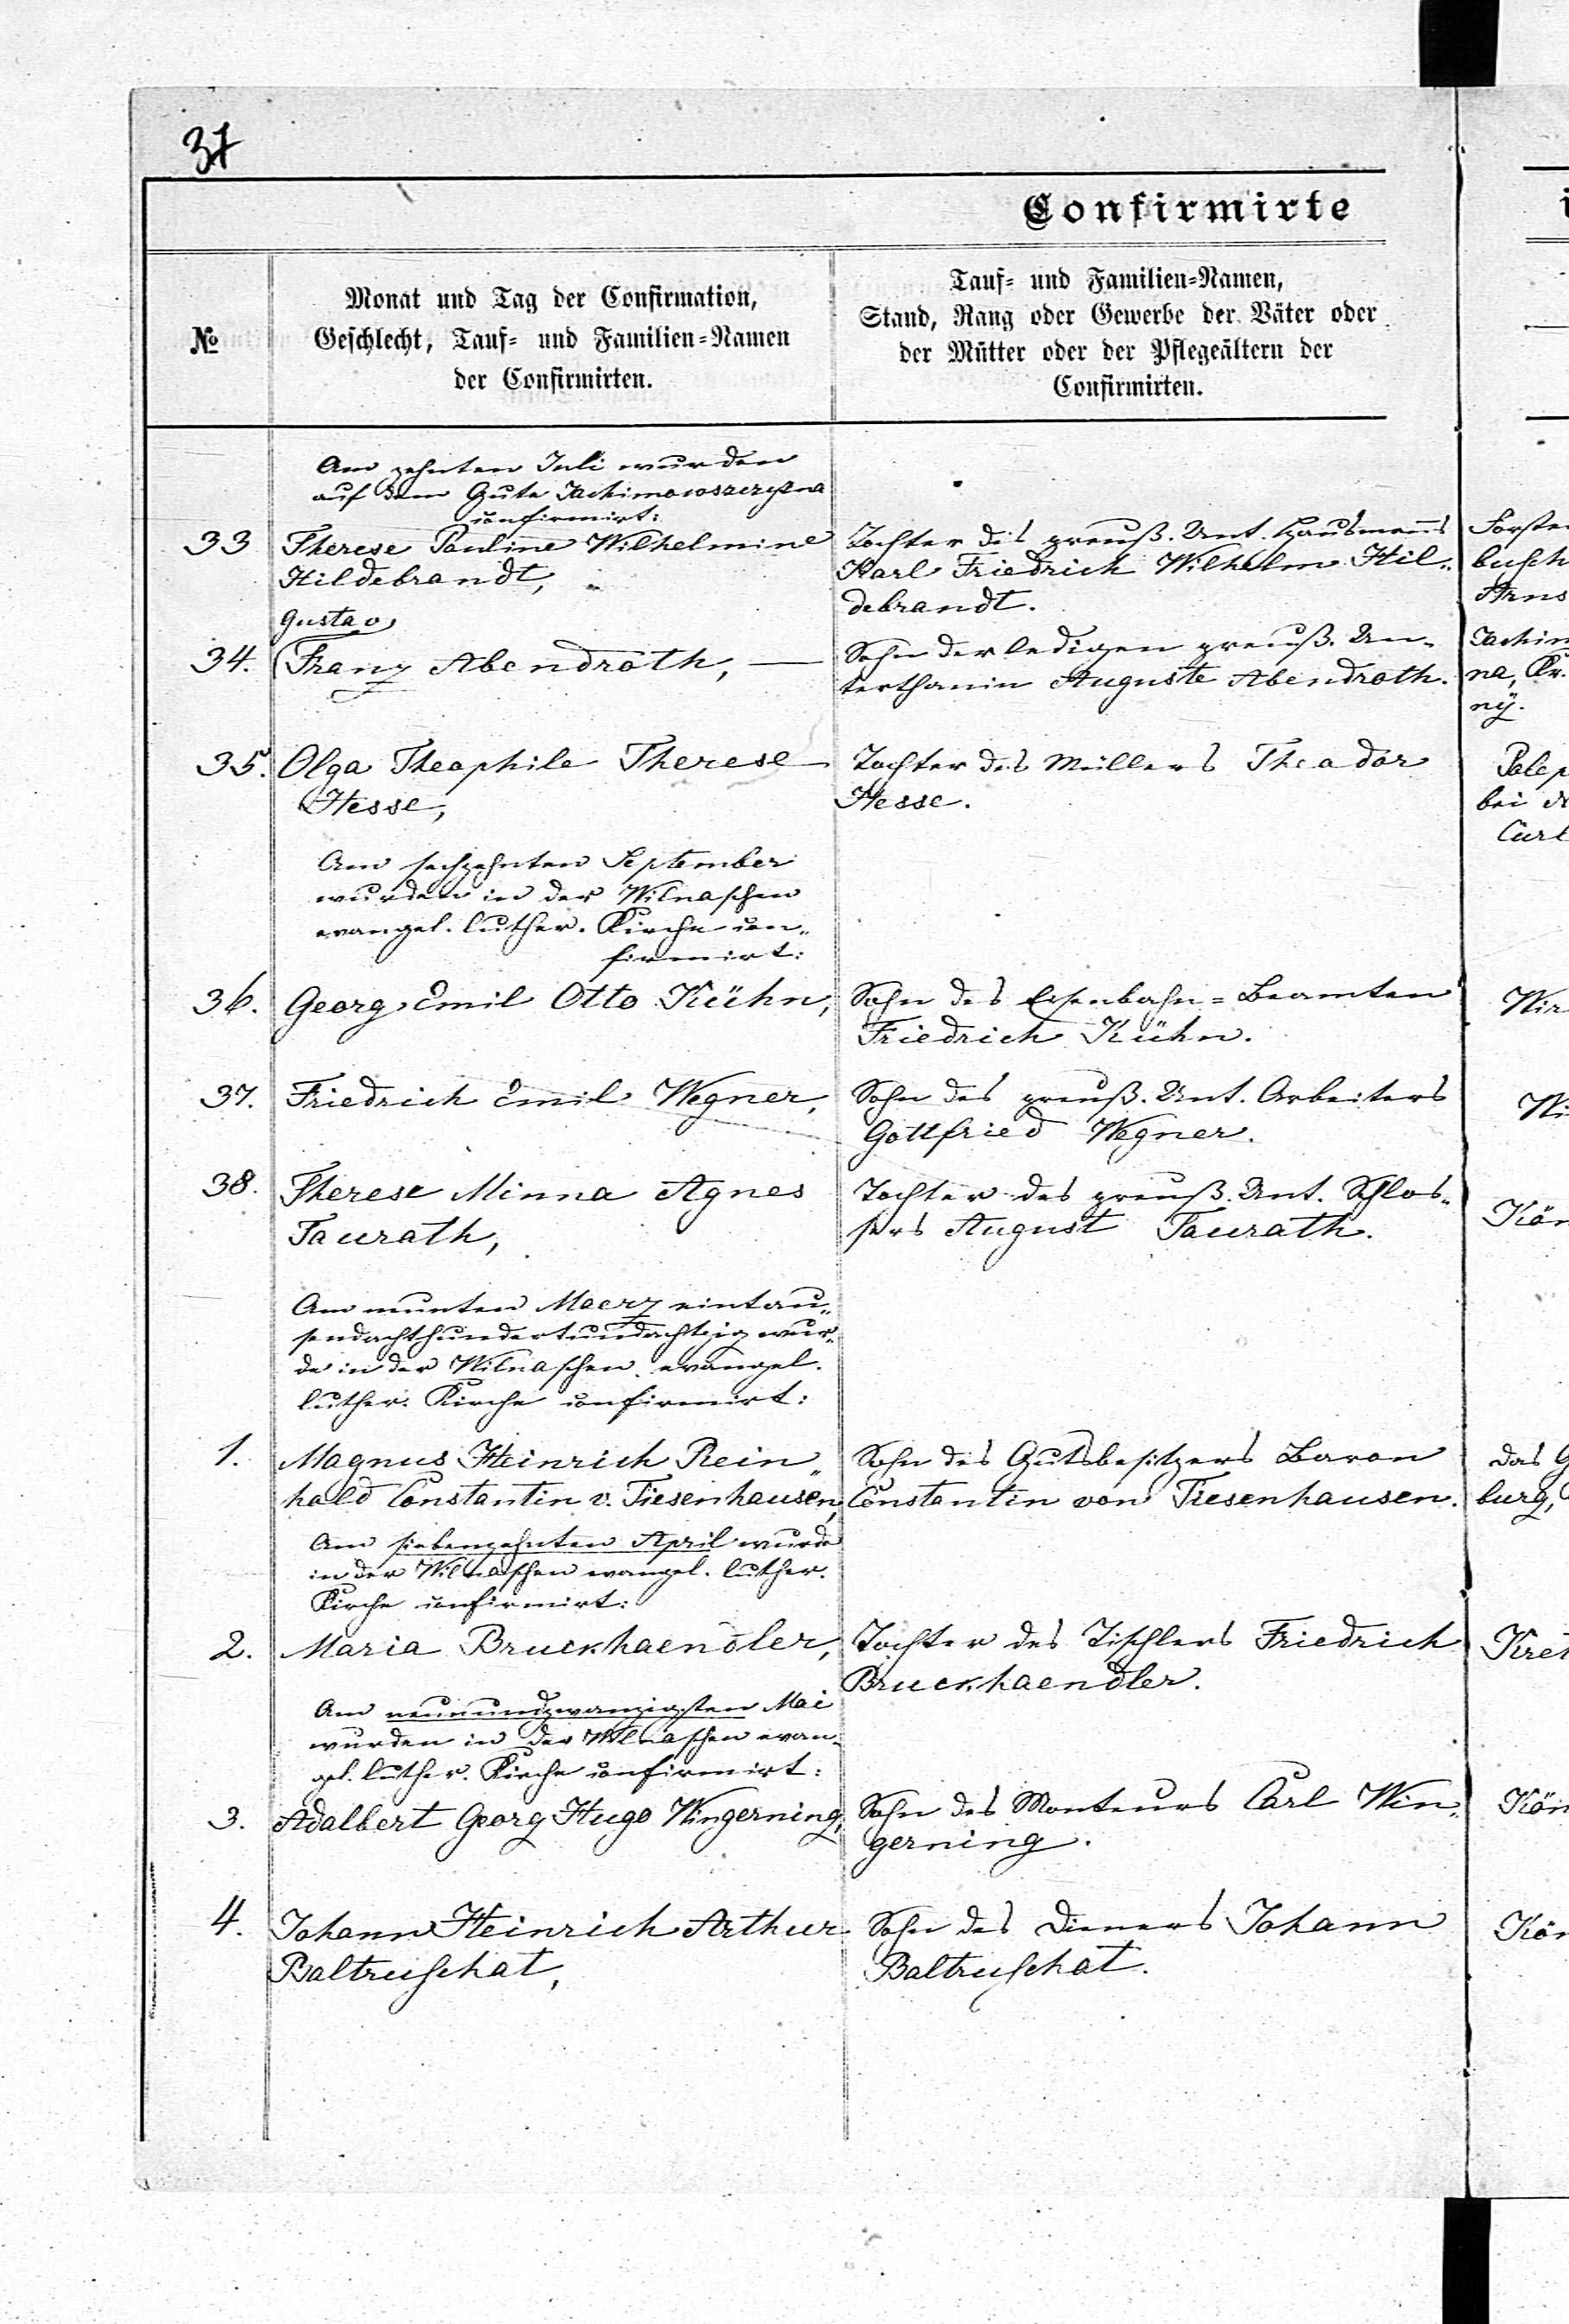 37
Confirmirte
№
Monat und Tag der Confirmation,
Geschlecht, Tauf- und Familien-Namen
der Confirmirten.
Tauf- und Familien-Namen,
Stand, Rang oder Gewerbe der Väter oder
der Mütter oder der Pflegeältern der
Confirmirten.
Am zehnten Juli wurden
auf dem Gute Jachimowszczyzna
confirmirt:
33 Therese Pauline Wilhelmine
Hildebrandt,
Tochter des preuß. Unt. Hausmanns
Karl Friedrich Wilhelm Hil„
debrandt.
Forste
busch
Arns
Gustav
34. Franz Abendroth,
Sohn der ledigen preuß. Un„
terthanin Auguste Abendroth.
Jachim
na, Kr.
ny.
35. Olga Theophile Therese
Hesse,
Tochter des Müllers Theodor
Hesse.
Palep
bei
Curl
Am sechzehnten September
wurden in der Wilnaschen
evangel. luther. Kirche con„
firmirt:
36. Georg Emil Otto Kühn,
Sohn des Eisenbahn-Beamten
Friedrich Kühn.
Wir
37. Friedrich Emil Wegner,
Sohn des preuß. Unt. Arbeiters
Gottfried Wegner.
Wi
38. Therese Minna Agnes
Taurath,
Tochter des preuß. Unt. Schlos„
sers August Taurath.
Kön
Am neunten Maerz eintau„
sendachthundertundachtzig wur„
de in der Wilnaschen evangel.
luther. Kirche confirmirt:
1. Magnus Heinrich Rein„
hold Constantin v. Tiesenhausen,
Sohn des Gutsbesitzers Baron
Constantin von Tiesenhausen.
das G
burg,
Am siebenzehnten April wurde
in der Wilnaschen evangel. luther.
Kirche confirmirt:
2. Maria Bruckhaendler,
Tochter des Tischlers Friedrich
Bruckhaendler.
Kret
Am neunundzwanzigsten Mai
wurden in der Wilnaschen evan„
gel. luther. Kirche confirmirt:
3. Adalbert Georg Hugo Wingerning,
Sohn des Monteurs Carl Win„
gerning.
Kön
4. Johann Heinrich Arthur
Baltruschat,
Sohn des Dieners Johann
Baltruschat.
Kön